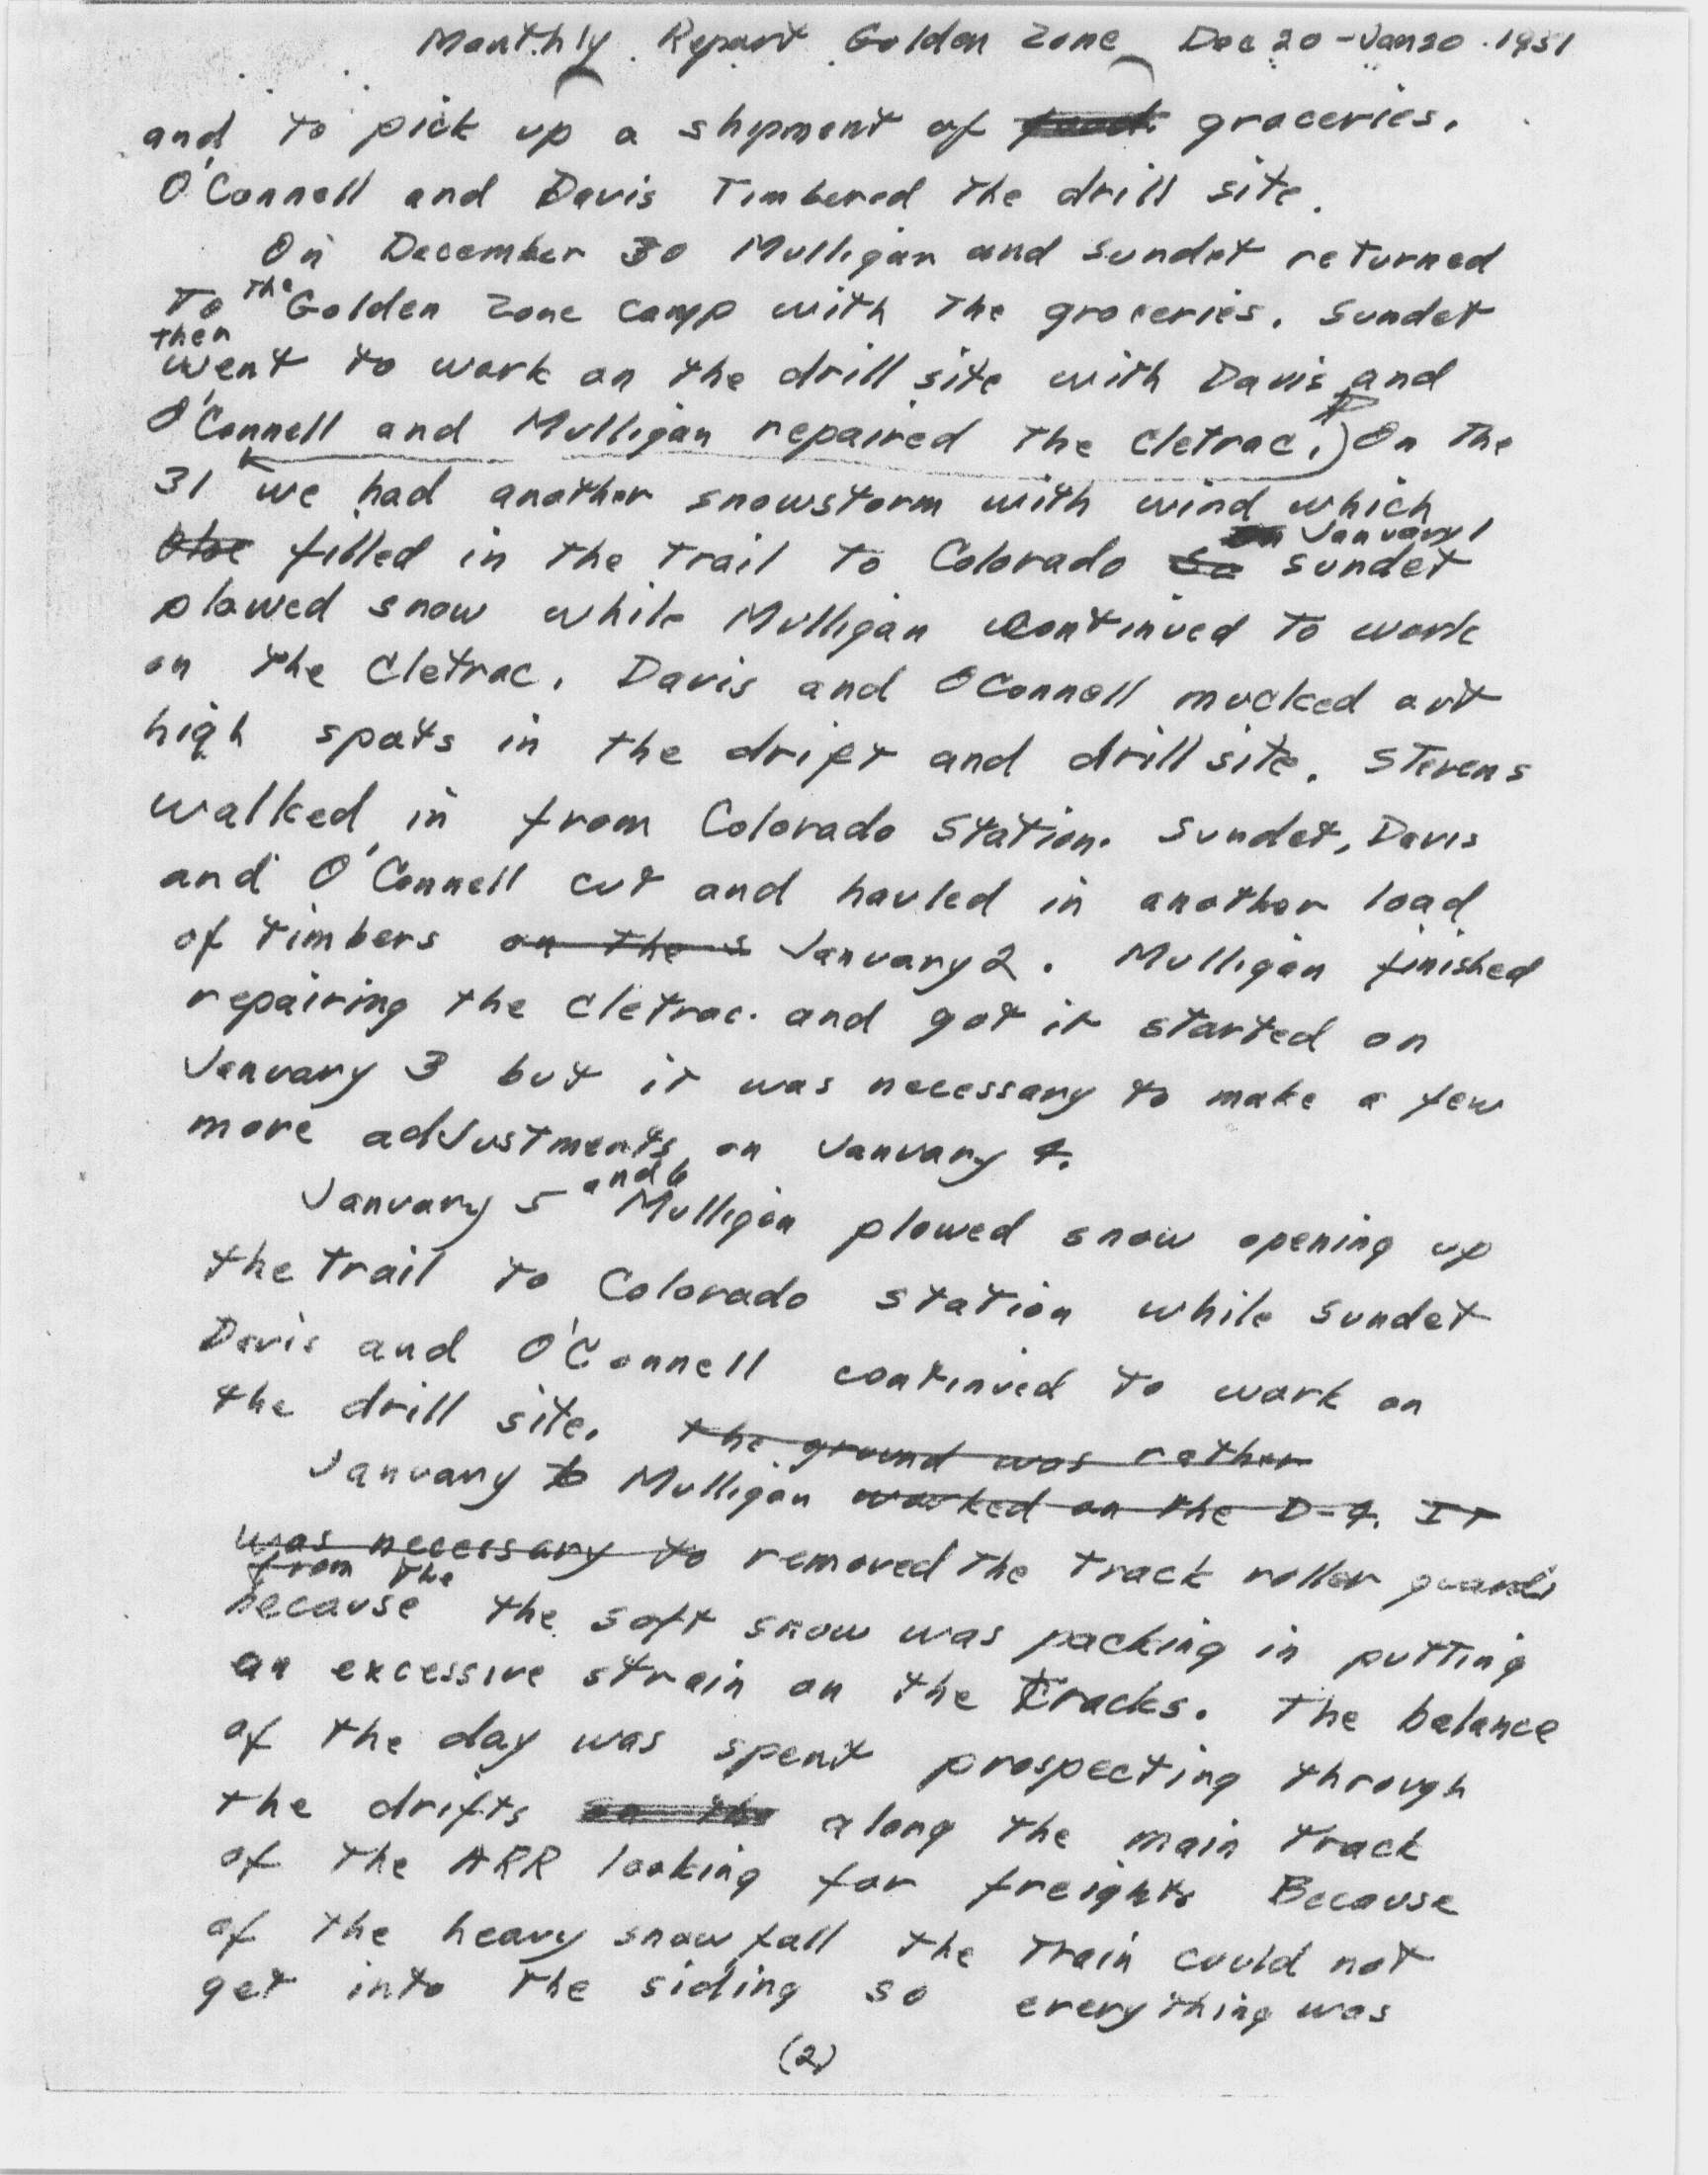 Monthly Report Golden Zone Dec 20 - Jan 20 . 1951
and to pick up a shipment of food groceries.
O'Connell and Davis Timbered the drill site.
On December 30 Mulligan and Sundet returned
To the Golden Zone camp with the groceries. Sundet
then
went to work on the drill site with Davis and
O'Connell and Mulligan repaired the Cletrac. On the
31 we had another snowstorm with wind which
on January 1
filled in the trail to Colorado so Sundet
plowed snow while Mulligan continued to work
on the Cletrac. Davis and OConnell mucked out
high spots in the drift and drill site. Stevens
walked in from Colorado Station. Sundet, Davis
and O'Connell cut and hauled in another load
of timbers on the s January 2. Mulligan finished
repairing the cletrac. and got it started on
January 3 but it was necessary to make a few
more adjustments on January 4.
January 5 and 6 Mulligan plowed snow opening up
the trail to Colorado station while Sundet
Davis and O'Connell continued to work on
the drill site. the ground was rather
January 6 Mulligan worked on the D-4. It
was necessary to removed the track roller guards
from the
because the soft snow was packing in putting
an excessive strain on the tracks. The balance
of the day was spent prospecting through
the drifts on the along the main track
of the ARR looking for freights Because
of the heavy snow fall the train could not
get into the siding so everything was
(2)